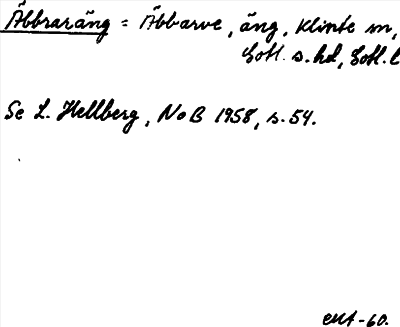 Äbbraräng = Äbbarve, äng, Klinte sn,
Gotl. s. hd, Gotl. l
Se L. Hellberg, NoB 1958, s. 54.